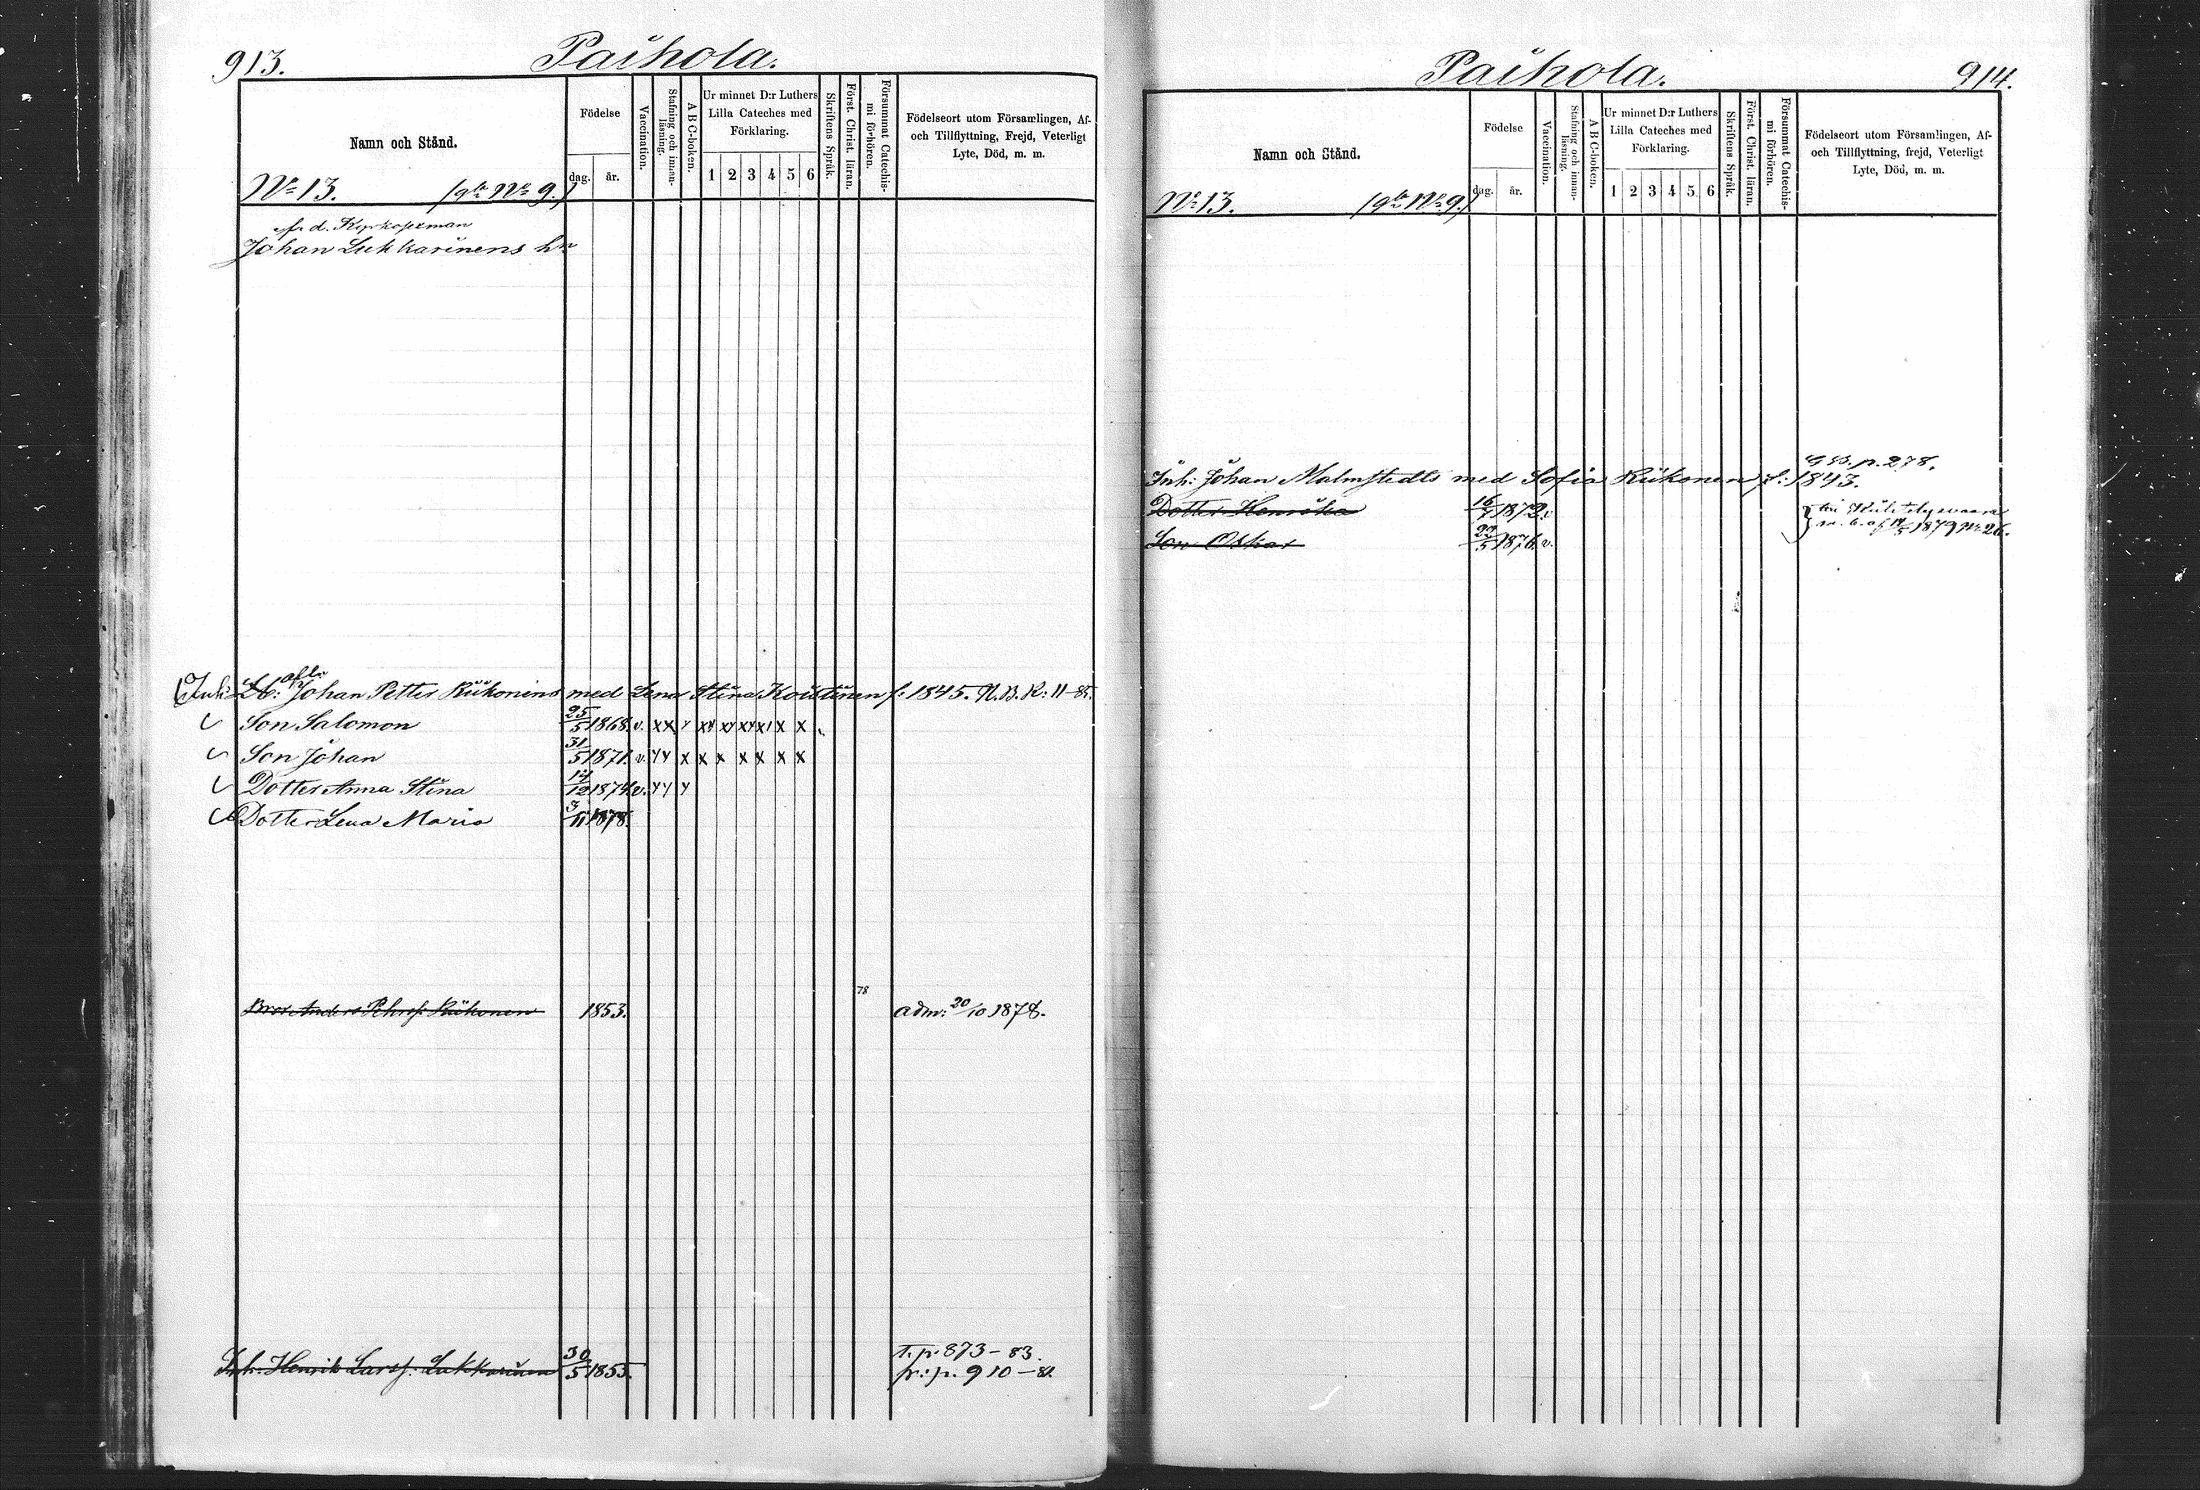 913. Paihola.
Namn och Stånd.
Födelse
dag. år.
Vaccination.
Stafning och innan-läsning.
A B C-boken.
Ur minnet D:r Luthers
Lilla Cateches med
Förklaring.
1 2 3 4 5 6
Skriftens Språk.
Först. Christ. läran.
Försummat Catechis-mi förhören.
Födelseort utom Församlingen, Af-
och Tillflyttning, Frejd, Veterligt
Lyte, Död, m. m.
No 13. No 9.)
f. d.
Johan Lukkarinens
Johan Petter Riikonens med Lena Stina Koistinen f: 1845. N.B. R: 11-85.
Son Salomon 25/5 1868. v.
Son Johan 31/5 1871. v.
Dotter Anna Stina 14/12 1874. v.
Dotter Lena Maria 3/11 1878.
78
Bror Anders Pehrsf: Riikonen 1853. adm: 20/10 1878.
Inh: Henrik Larsf: Lukkarinen 30/5 1855. T. p. 873-83.
fr: p. 910
Paihola. 914.
Namn och Stånd.
Födelse
dag. år.
Vaccination.
Stafning och innan-läsning.
A B C-boken.
Ur minnet D:r Luthers
Lilla Cateches med
Förklaring.
1 2 3 4 5 6
Skriftens Språk.
Först. Christ. läran.
Försummat Catechis-mi förhören.
Födelseort utom Församlingen, Af-
och Tillflyttning, frejd, Veterligt
Lyte, Död, m. m.
No 13. No 9.)
p. 278.
Inh: Johan Malmstedts med Sofia Riikonen f: 1843.
Dotter Henrika 16/7 1872. v.
1879 No 26.
Son Oskar 22/5 1876. v.